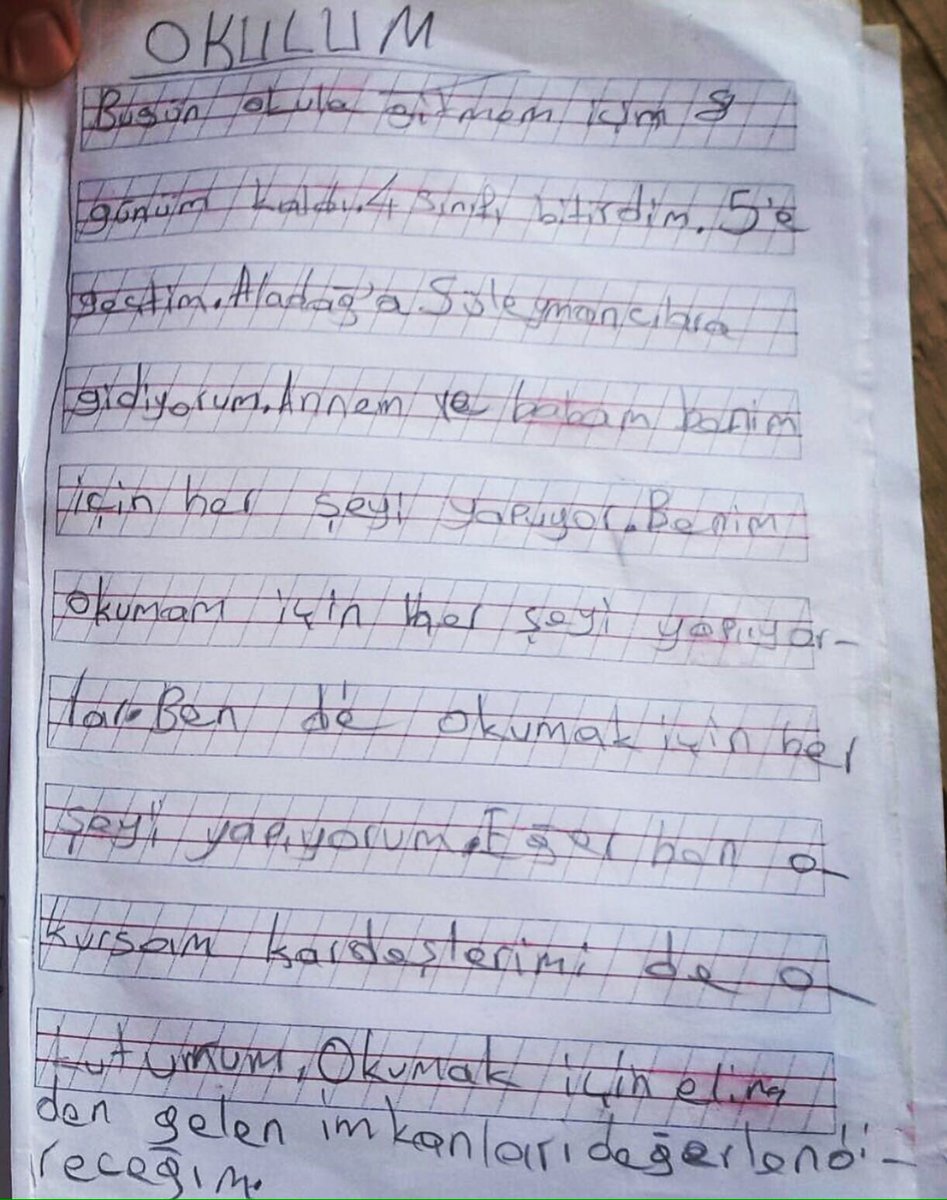 OKULUM
Bugün okula gitmem için 8
günüm kaldı. 4 sınıfı bitirdim. 5'e
geçtim. Aladağ'a Süleymancılara
gidiyorum. Annem ve babam benim
için her şeyi yapıyor. Benim
okumam için her şeyi yapıyor-
lar. Ben de okumak için her
şeyi yapıyorum. Eğer ben o-
kursam kardeşlerimi de o-
kuturum. Okumak için elim
den gelen imkanları değerlendi-
receğim.